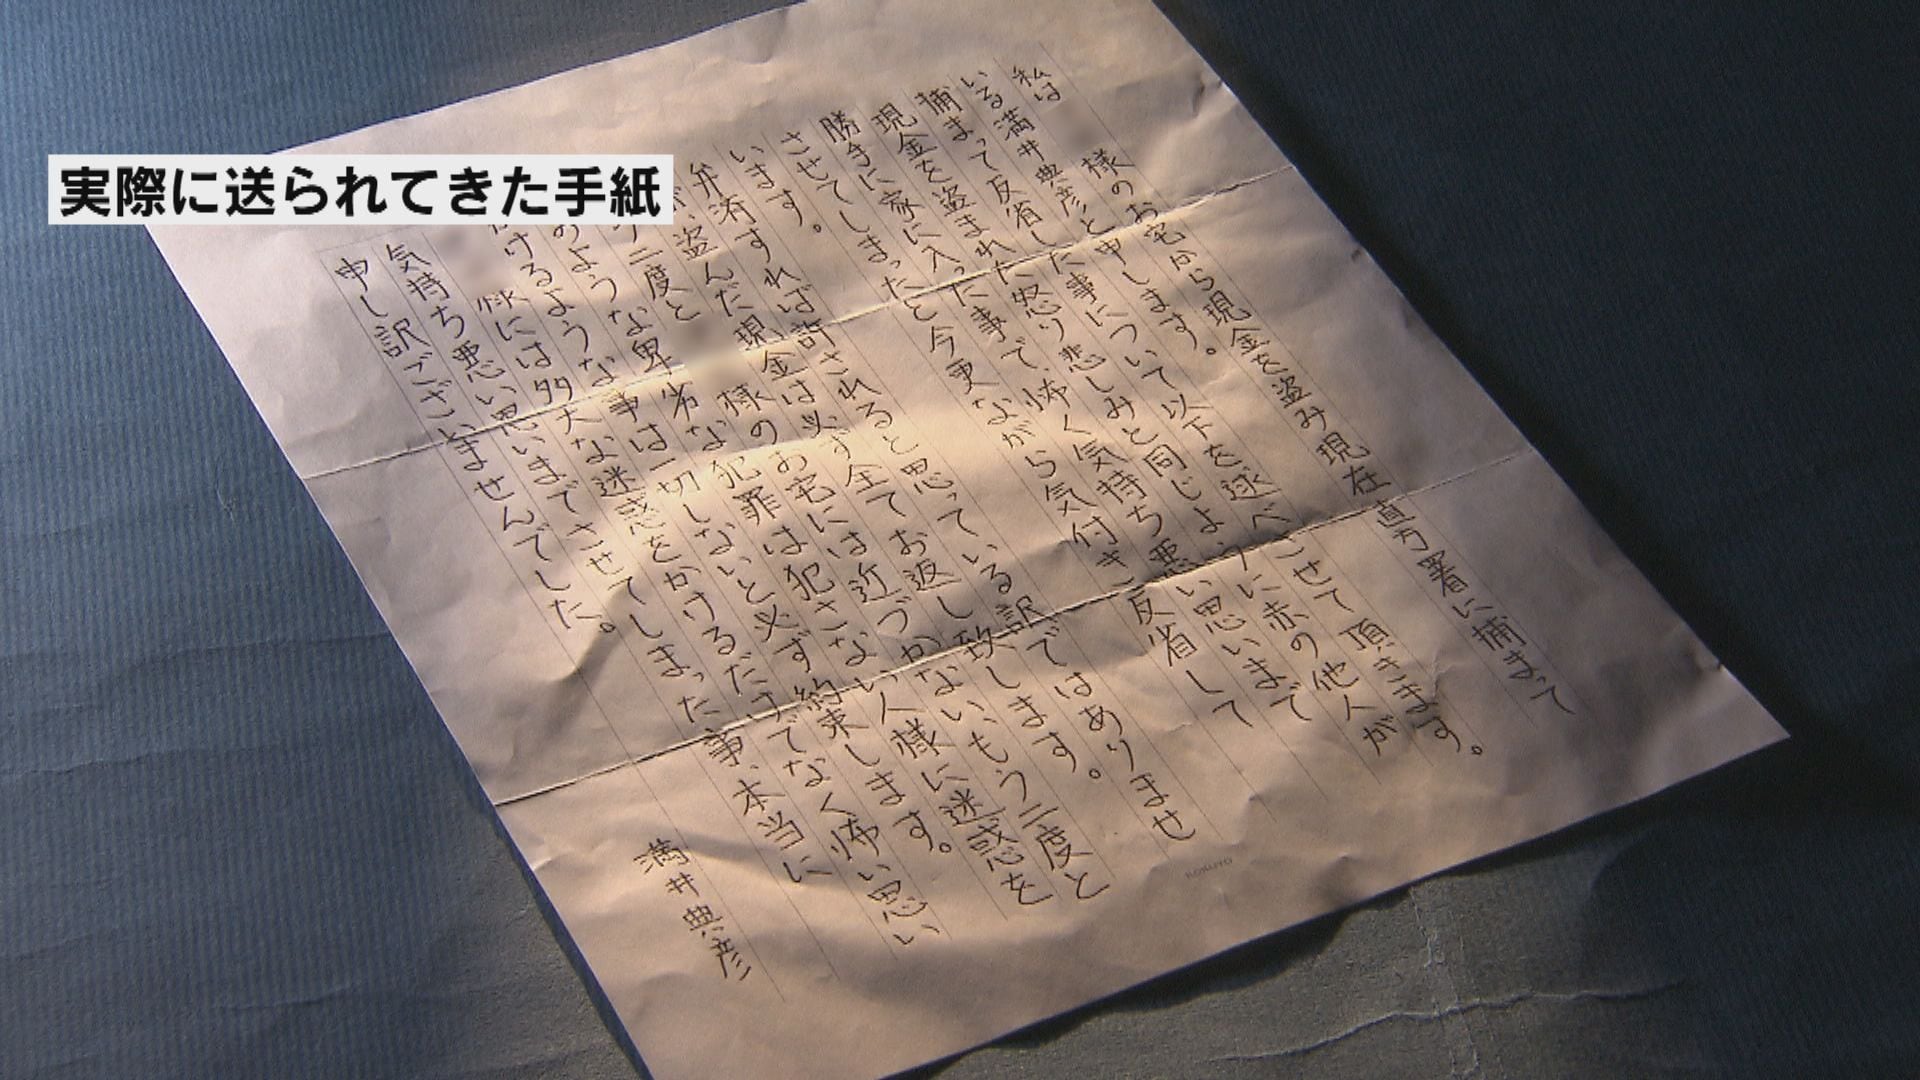 実際に送られてきた手紙
私は 様のお宅から現金を盗み現在直方署に捕まって
いる満井典彦と申します。
捕まって反省した事について以下を述べさせて頂きます。
現金を盗まれた怒り悲しみと同じように赤の他人が
勝手に家に入った事で、怖く気持ち悪い思いまで
させてしまったと今更ながら気付き反省して
います。
弁済すれば許されると思っている訳ではありませ
が、盗んだ現金は必ず全てお返し致します。
二度と 様のお宅には近づかない、もう二度と
のような卑劣な犯罪は犯さない人様に迷惑を
けるような事は一切しないと必ず約束します。
様には多大な迷惑をかけるだけでなく怖い思い
気持ち悪い思いまでさせてしまった事、本当に
申し訳ございませんでした。
満井典彦
KOKUYO